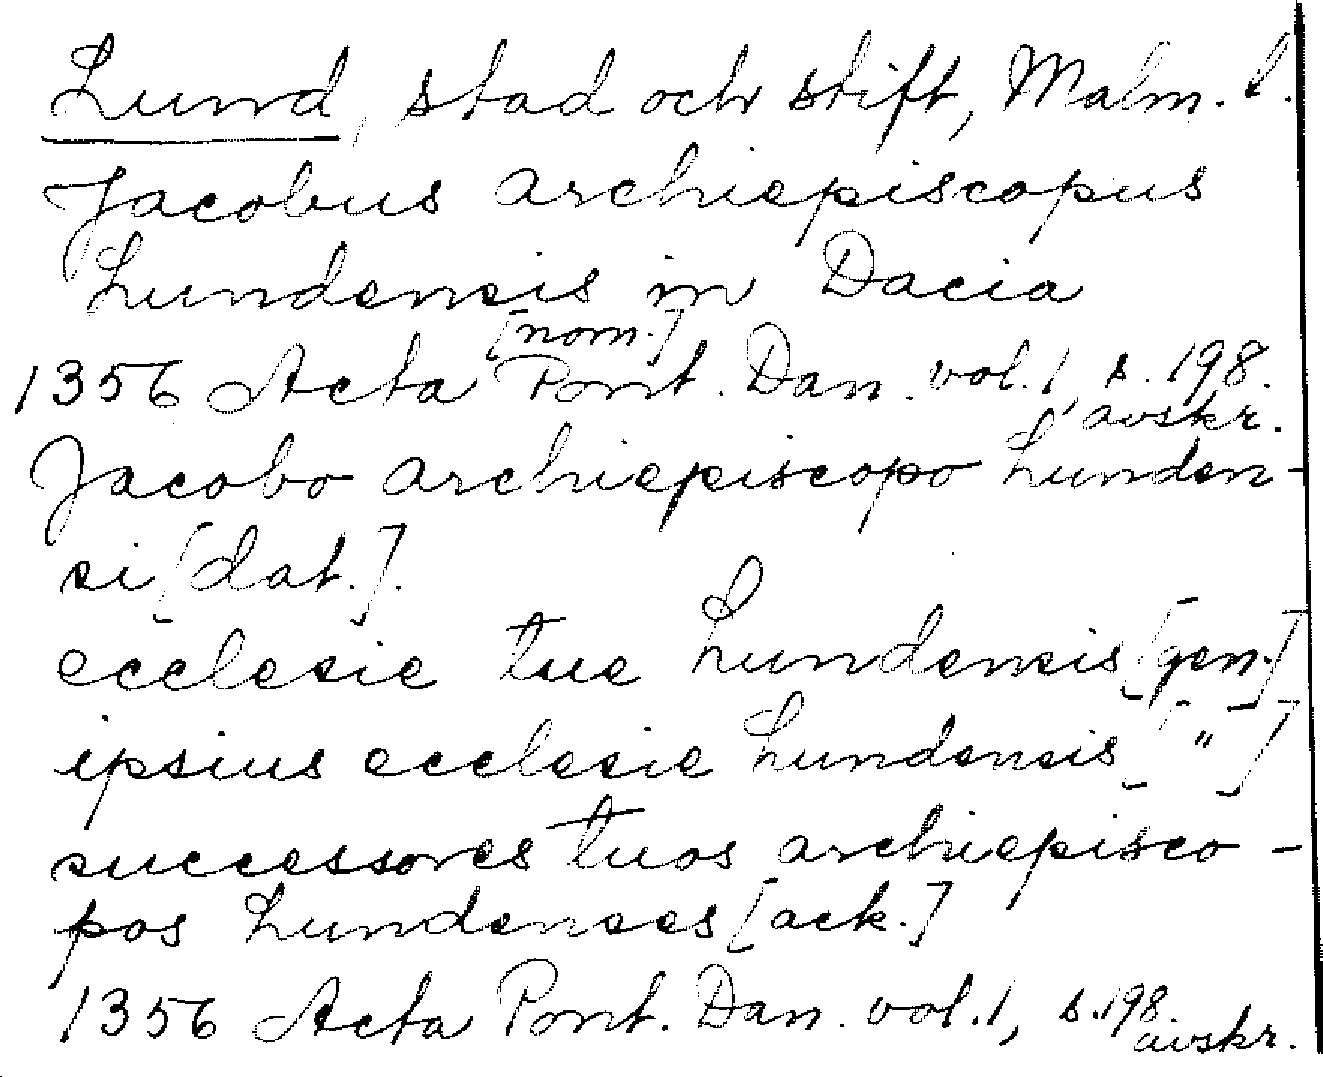 Lund, stad och stift, Malm. l.
Jacobus archiepiscopus
Lundensis in Dacia
[nom.]
1356 Acta Pont. Dan. vol. 1, s. 198.
avskr.
Jacobo archiepiscopo Lunden-
si [dat.].
ecclesie tue Lundensis [gen.]
ipsius ecclesie Lundensis [ " ]
successores tuos archiepisco-
pos Lundenses [ack.]
1356 Acta Pont. Dan. vol. 1, s. 198.
avskr.